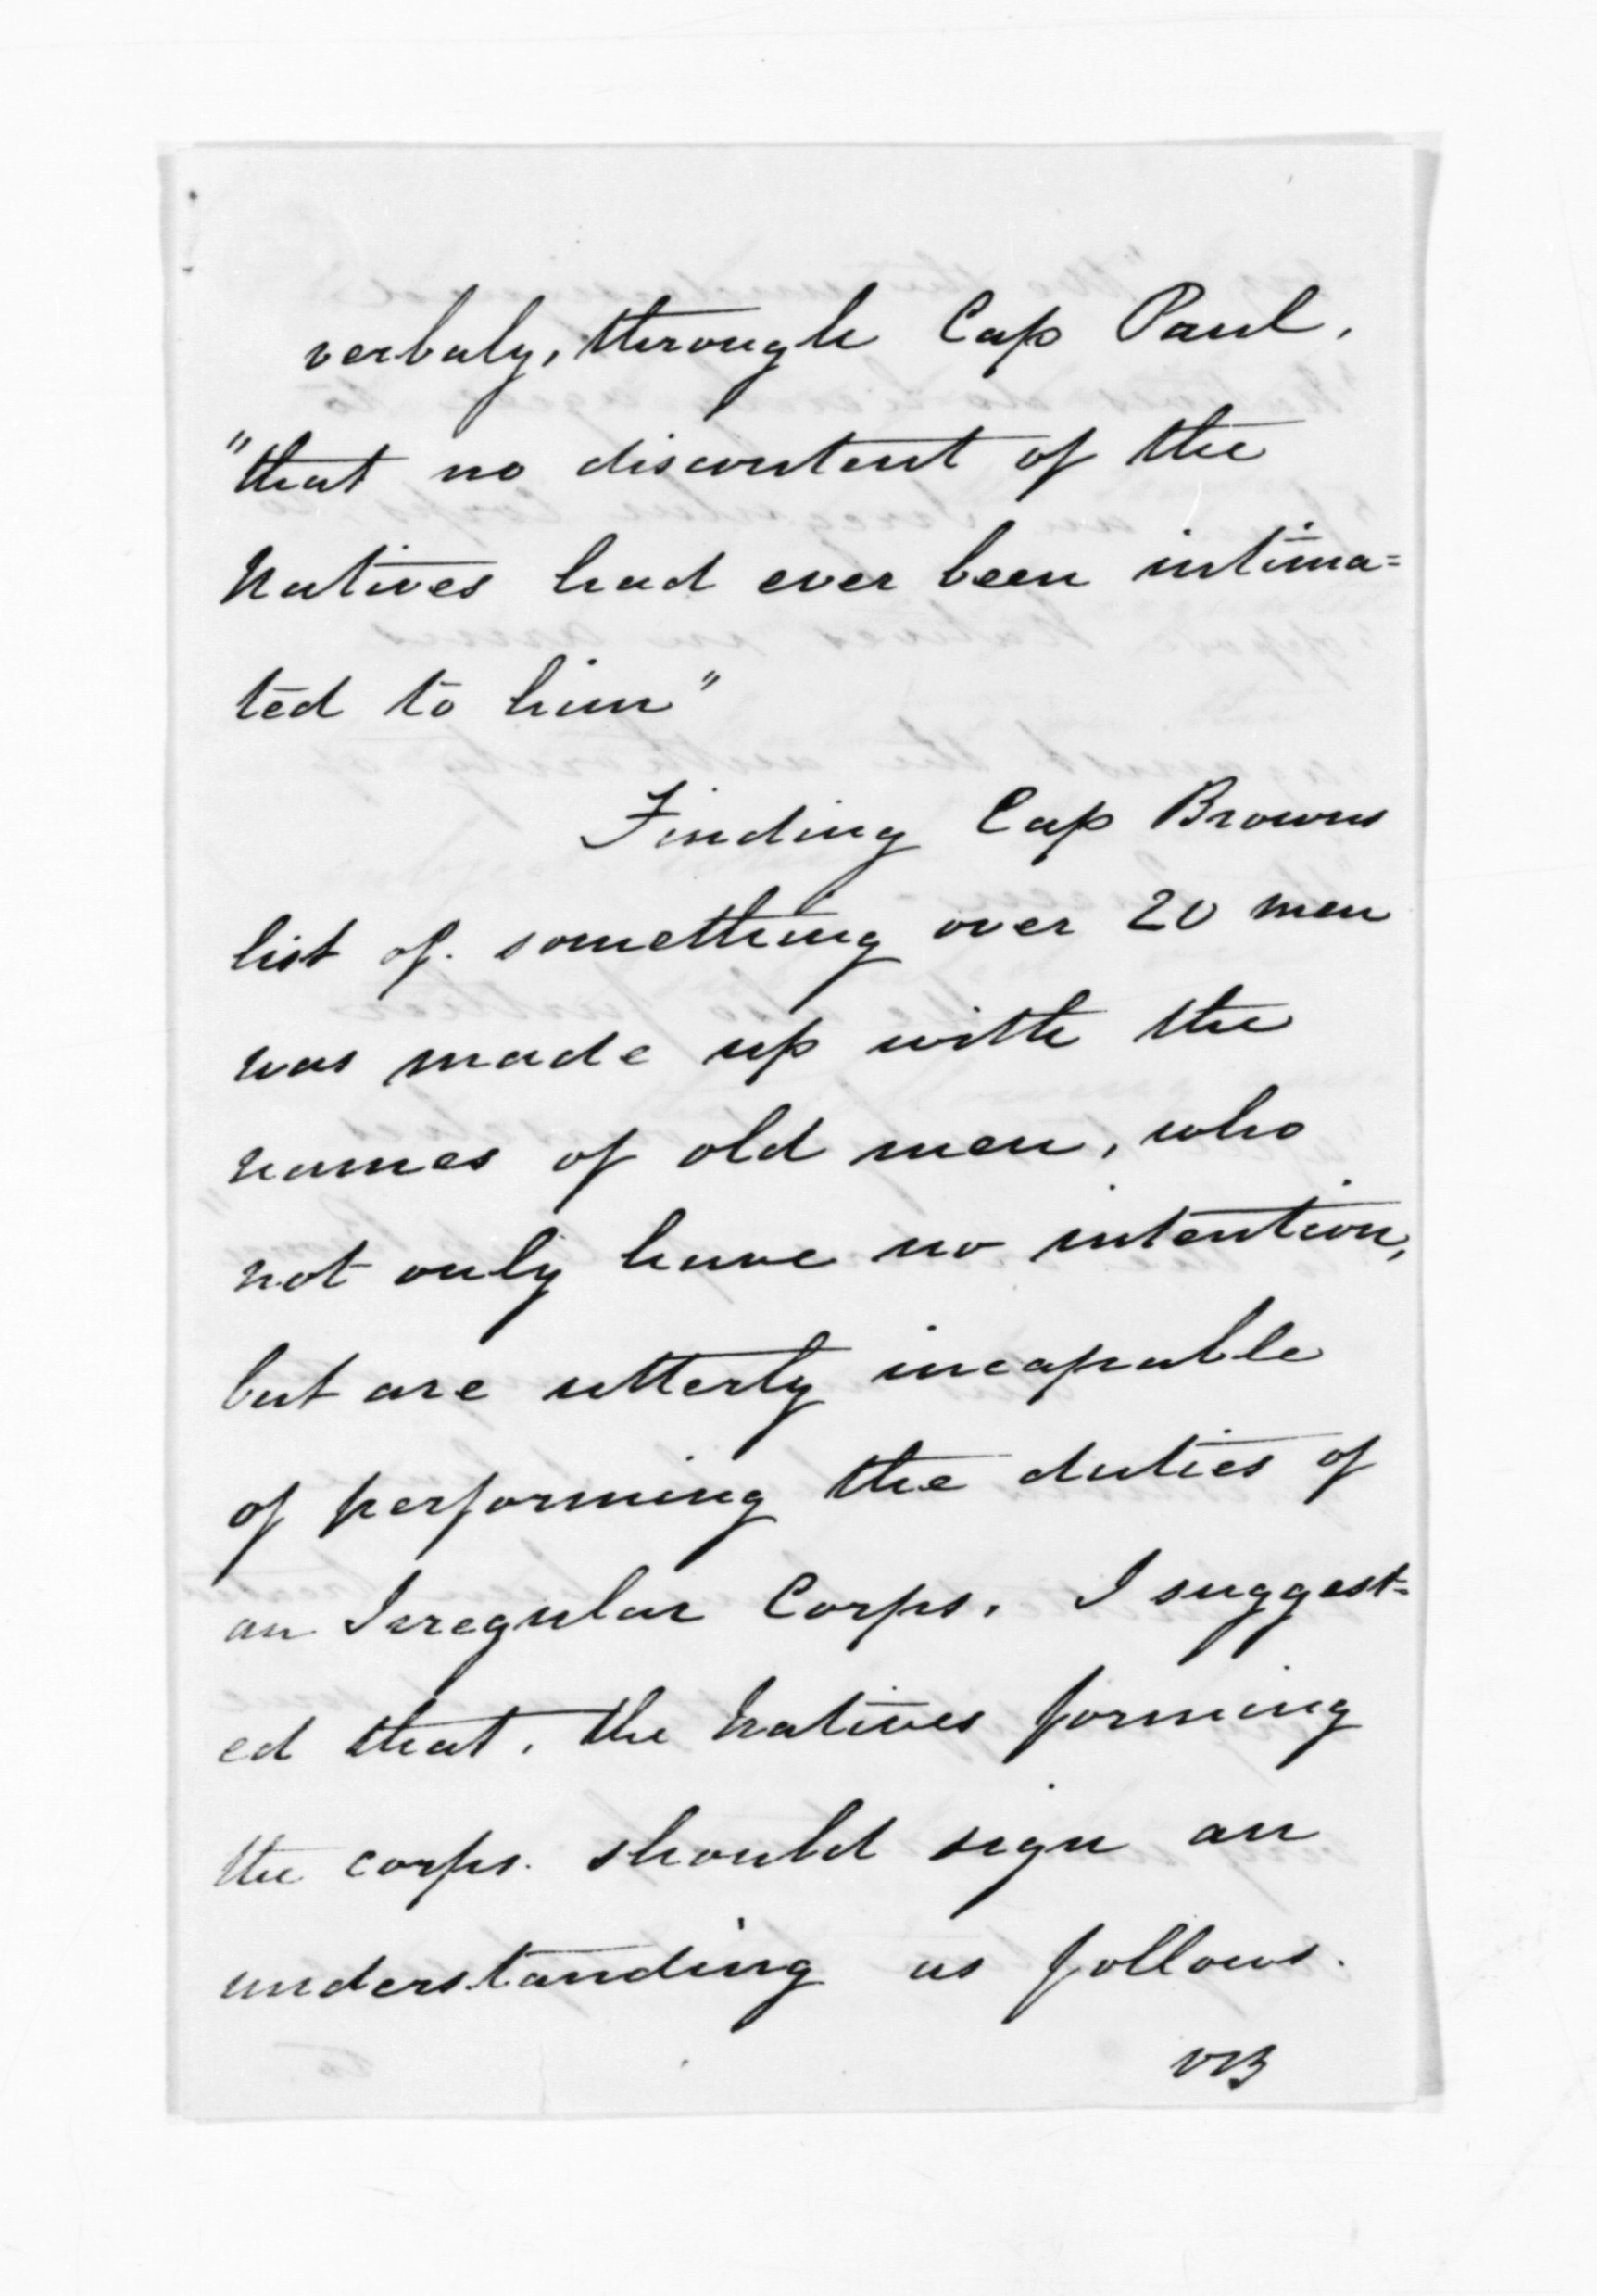 verbaly, through Cap Paul,
"that no discontent of the
Natives had ever been intima=
ted to him"
Finding Cap Browns
list of. something over 20 men
was made up with the
names of old men, who
not only have no intention,
but are utterly incapable
of performing the duties of
an Irregular Corps. I suggest=
ed that, the Natives forming
the corps. should sign an
understanding as follows.